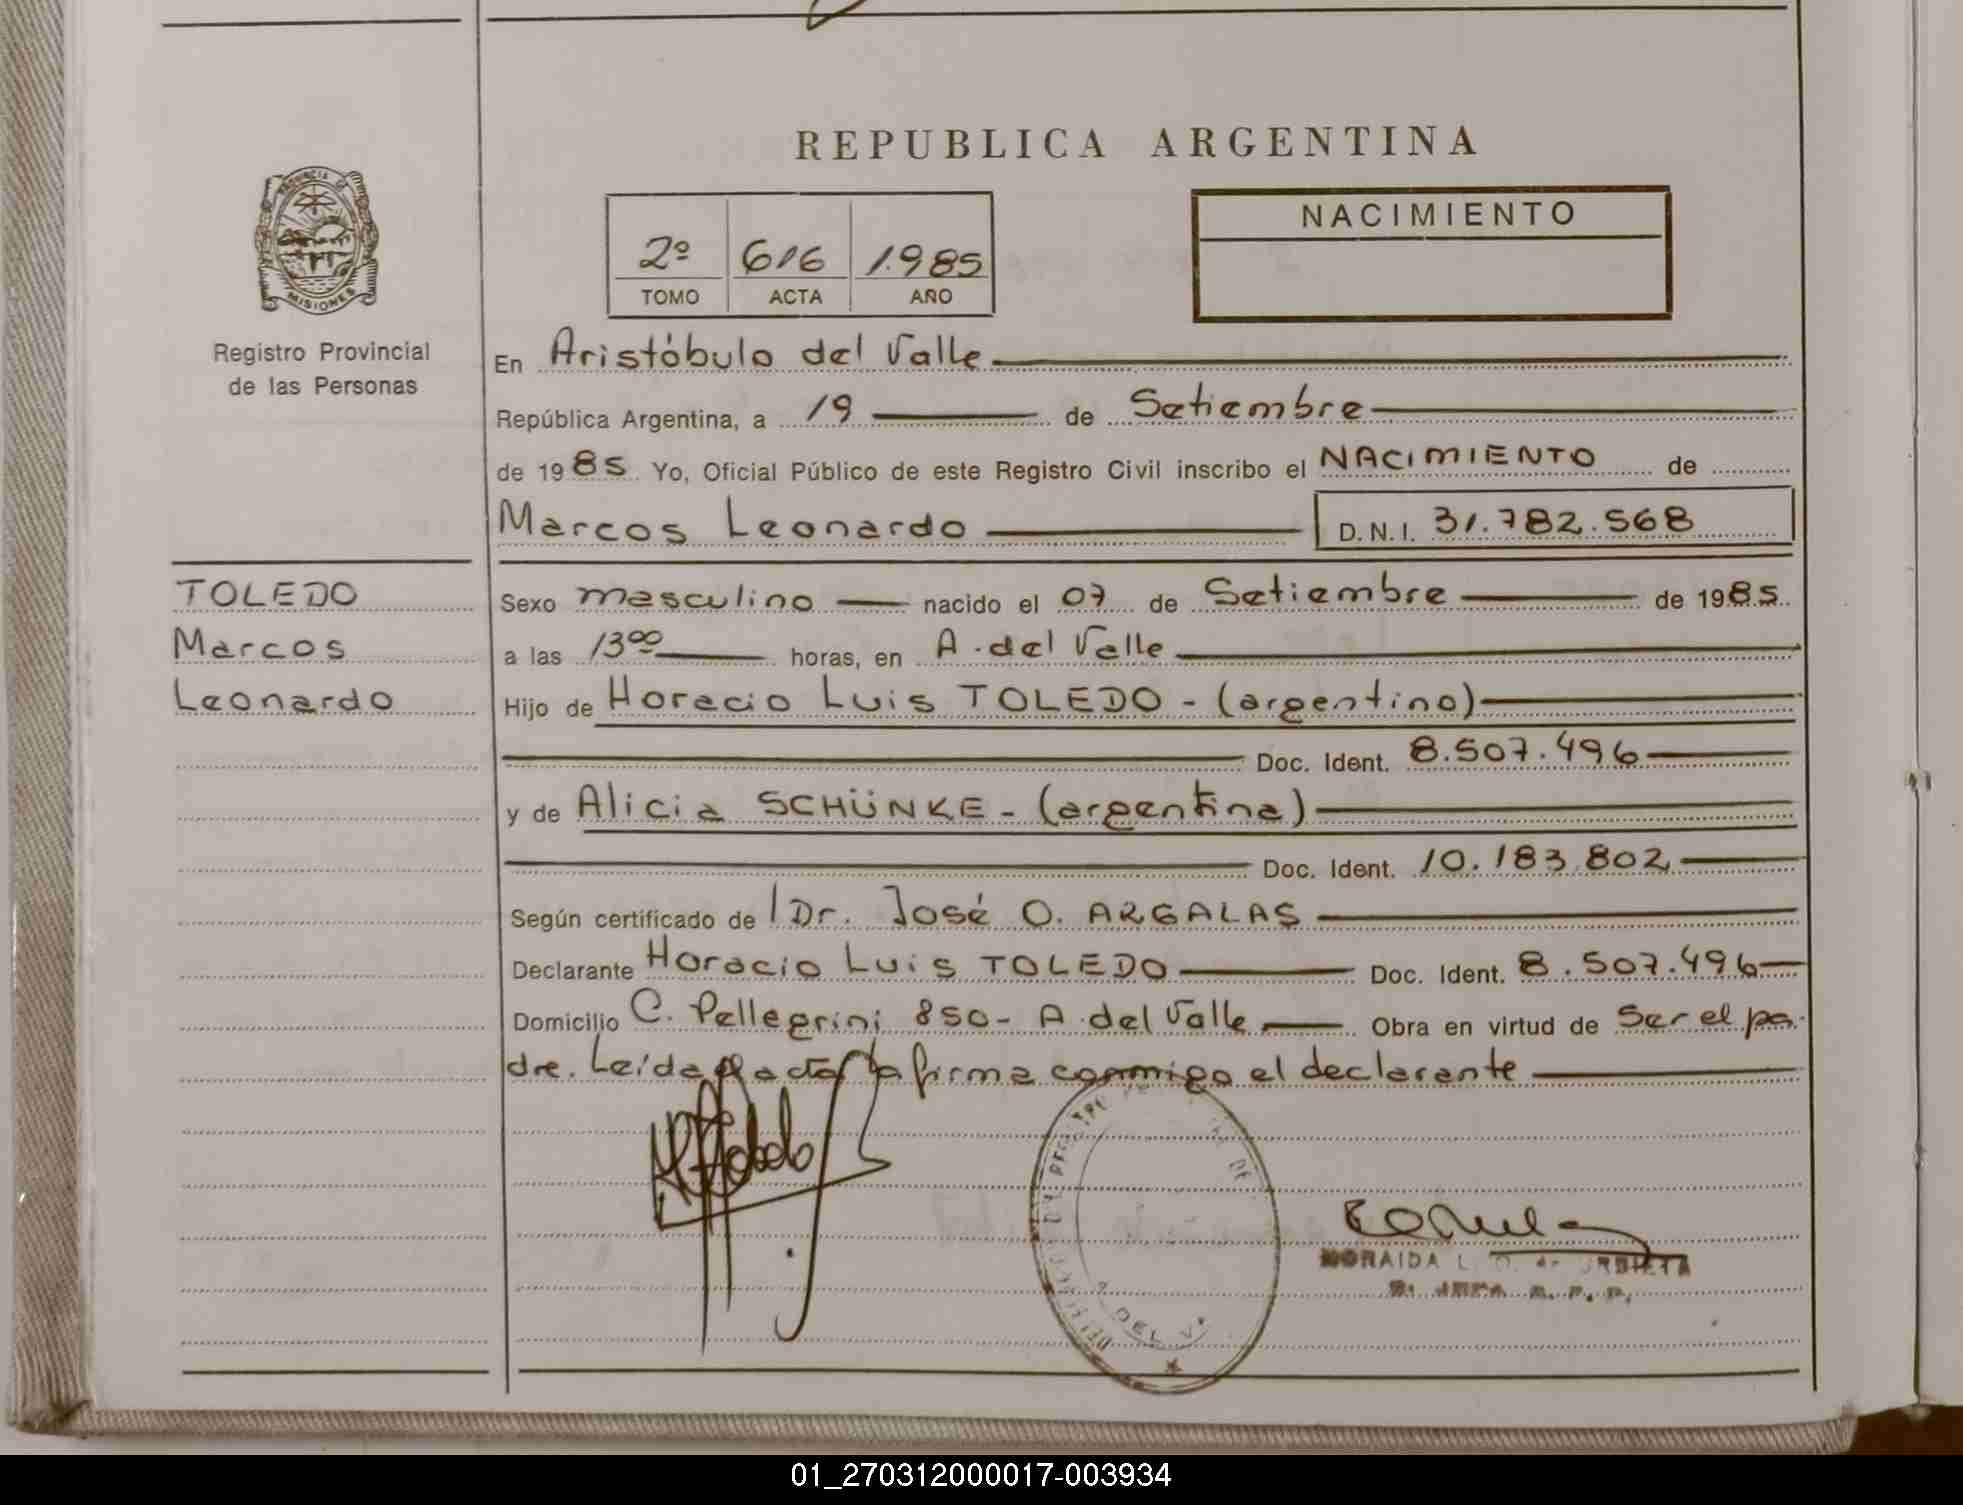 REPUBLICA ARGENTINA
PROVINCIA DE
MISIONES
Registro Provincial
de las Personas
2º 616 1.985
TOMO ACTA AÑO
NACIMIENTO
En Aristóbulo del Valle
República Argentina, a 19 de Setiembre
de 1985 Yo, Oficial Público de este Registro Civil inscribo el NACIMIENTO de
Marcos Leonardo D.N.I. 31.782.568
TOLEDO
Marcos
Leonardo
Sexo masculino nacido el 07 de Setiembre de 1985
a las 13ºº horas, en A. del Valle
Hijo de Horacio Luis TOLEDO - (argentino)
Doc. Ident. 8.507.496
y de Alicia SCHÜNKE - (argentina)
Doc. Ident. 10.183.802
Según certificado de Dr. José O. ARGALAS
Declarante Horacio Luis TOLEDO Doc. Ident. 8.507.496
Domicilio C. Pellegrini 850- A. del Valle Obra en virtud de Ser el pa-
dre. Leída el acta la firma conmigo el declarante
DEL V.
01_270312000017-003934